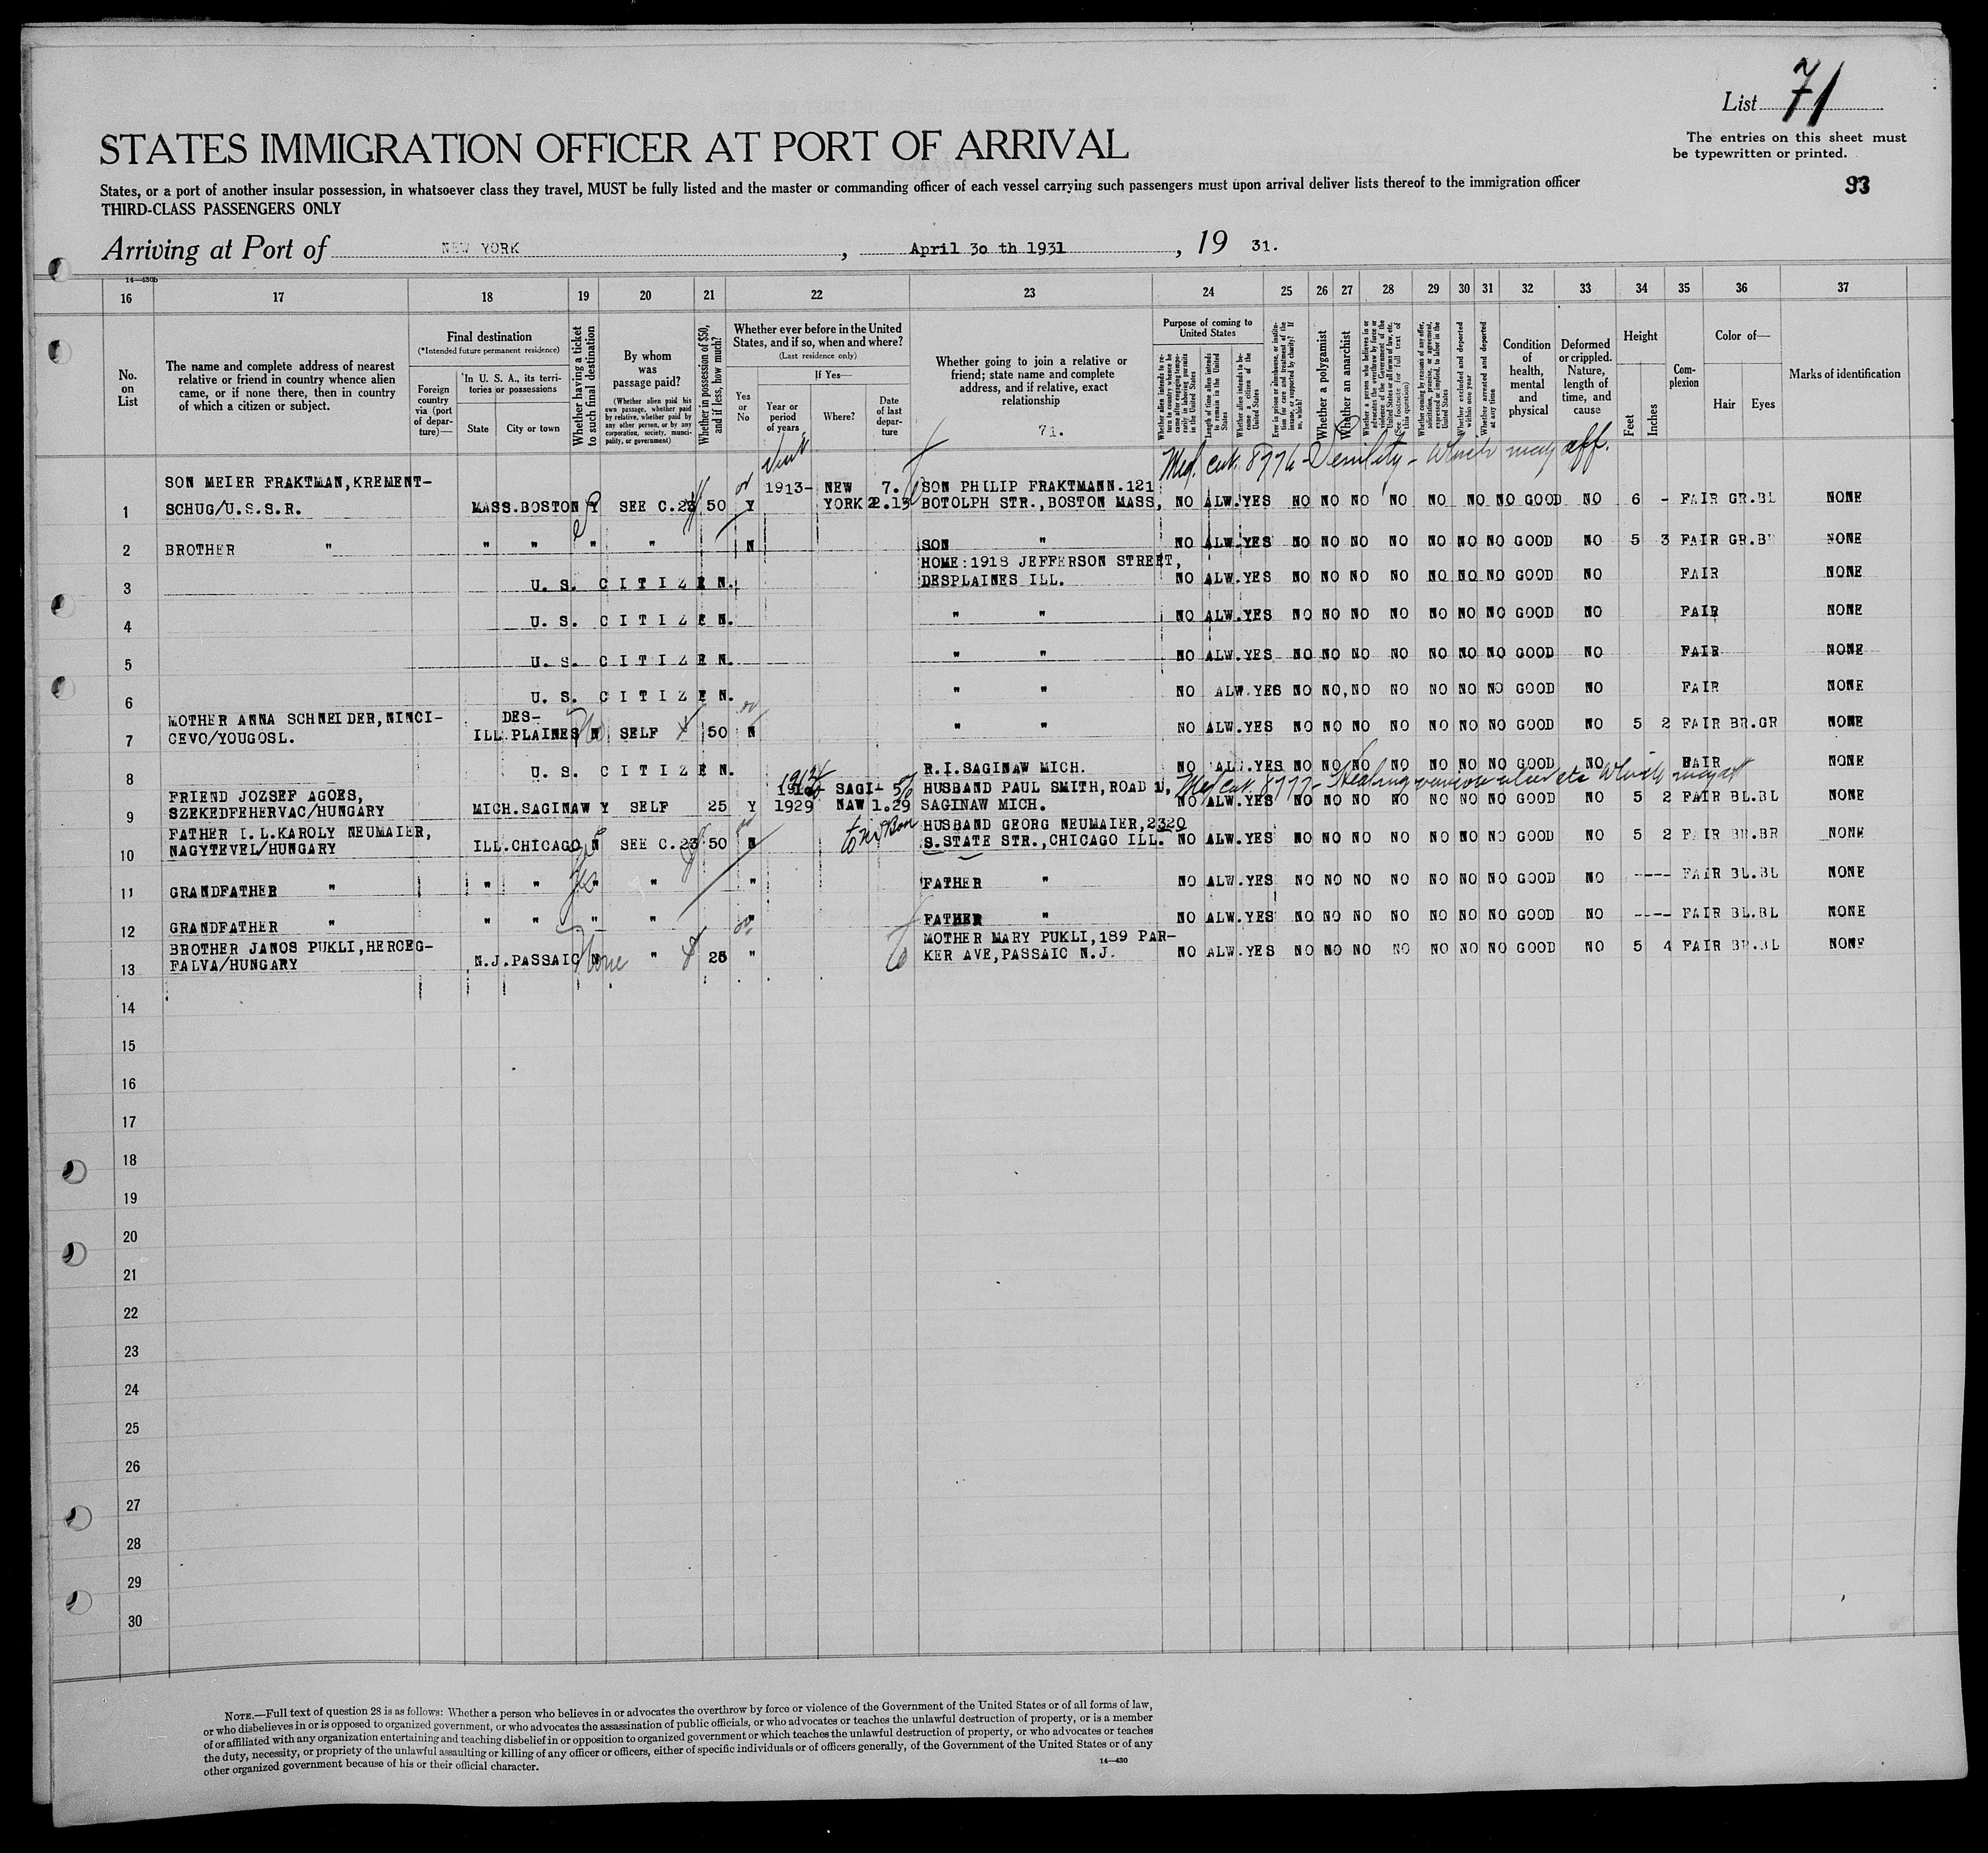 List 71
STATES IMMIGRATION OFFICER AT PORT OF ARRIVAL
The entries on this sheet must
be typewritten or printed.
States, or a port of another insular possession, in whatsoever class they travel, MUST be fully listed and the master or commanding officer of each vessel carrying such passengers must upon arrival deliver lists thereof to the immigration officer
THIRD-CLASS PASSENGERS ONLY
93
Arriving at Port of NEW YORK, April 30 th 1931, 19 31.
14—430b
16 17 18 19 20 21 22 23 24 25 26 27 28 29 30 31 32 33 34 35 36 37
No.
on
List
The name and complete address of nearest
relative or friend in country whence alien
came, or if none there, then in country
of which a citizen or subject.
Final destination
(*Intended future permanent residence)
Foreign
country
via (port
of depar-
ture)—
*In U. S. A., its terri-
tories or possessions
State
City or town
Whether having a ticket
to such final destination
By whom
was
passage paid?
(Whether alien paid his
own passage, whether paid
by relative, whether paid by
any other person, or by any
corporation, society, munici-
pality, or government)
Whether in possession of $50,
and if less, how much?
Whether ever before in the United
States, and if so, when and where?
(Last residence only)
Yes
or
No
If Yes—
Year or
period
of years
Where?
Date
of last
depar-
ture
Whether going to join a relative or
friend; state name and complete
address, and if relative, exact
relationship
71.
Purpose of coming to
United States
Whether alien intends to re-
turn to country whence he
came after engaging tempo-
rarily in laboring pursuits
in the United States
Length of time alien intends
to remain in the United
States
Whether alien intends to be-
come a citizen of the
United States
Ever in prison or almshouse, or institu-
tion for care and treatment of the
insane, or supported by charity? If
so, which?
Whether a polygamist
Whether an anarchist
Whether a person who believes in or
advocates the overthrow by force or
violence of the Government of the
United States or all forms of law, etc.
(See footnote for full text of
this question)
Whether coming by reasons of any offer,
solicitation, promise, or agreement,
expressed or implied, to labor in the
United States
Whether excluded and deported
within one year
Whether arrested and deported
at any time
Condition
of
health,
mental
and
physical
Deformed
or crippled.
Nature,
length of
time, and
cause
Height
Feet
Inches
Com-
plexion
Color of—
Hair
Eyes
Marks of identification
Med. cert. 8776 - Senility - which may aff.
SON MEIER FRAKTMAN, KREMENT- 1913- NEW 7. SON PHILIP FRAKTMANN.121
1 SCHUG/U.S.S.R. MASS.BOSTON Y SEE C.23 50 Y YORK 2.13 BOTOLPH STR.,BOSTON MASS, NO ALW. YES NO NO NO NO NO NO NO GOOD NO 6 - FAIR GR.BL NONE
2 BROTHER " " " " " N SON " NO ALW. YES NO NO NO NO NO NO NO GOOD NO 5 3 FAIR GR. NONE
HOME:1918 JEFFERSON STREET,
3 U. S. CITIZEN. DESPLAINES ILL. NO ALW. YES NO NO NO NO NO NO NO GOOD NO FAIR NONE
4 U. S. CITIZEN. " " NO ALW. YES NO NO NO NO NO NO NO GOOD NO FAIR NONE
5 U. S. CITIZEN. " " NO ALW. YES NO NO NO NO NO NO NO GOOD NO FAIR NONE
6 U. S. CITIZEN. " " NO ALW. YES NO NO, NO NO NO NO NO GOOD NO FAIR NONE
MOTHER ANNA SCHNEIDER, NINCI- DES-
7 CEVO/YOUGOSL. ILL.PLAINES N SELF 50 N " " NO ALW. YES NO NO NO NO NO NO NO GOOD NO 5 2 FAIR BR.GR NONE
8 U. S. CITIZEN. R.I.SAGINAW MICH. NO ALW. YES NO NO NO NO NO NO NO GOOD NO FAIR NONE
FRIEND JOZSEF AGOES, SAGI- HUSBAND PAUL SMITH, ROAD 1,
9 SZEKEDFEHERVAC/HUNGARY MICH.SAGINAW Y SELF 25 Y 1929 NAW 1.29 SAGINAW MICH. NO ALW. YES NO NO NO NO NO NO NO GOOD NO 5 2 FAIR BL.BL NONE
FATHER I.L.KAROLY NEUMAIER, HUSBAND GEORG NEUMAIER, 2320
10 NAGYTEVEL/HUNGARY ILL.CHICAGO N SEE C.23 50 N S.STATE STR.,CHICAGO ILL. NO ALW. YES NO NO NO NO NO NO NO GOOD NO 5 2 FAIR BR.BR NONE
11 GRANDFATHER " " " " " " FATHER " NO ALW. YES NO NO NO NO NO NO NO GOOD NO ---- FAIR BL.BL NONE
12 GRANDFATHER " " " " " " FATHER " NO ALW. YES NO NO NO NO NO NO NO GOOD NO ---- FAIR BL.BL NONE
BROTHER JANOS PUKLI, HERCEG- MOTHER MARY PUKLI, 189 PAR-
13 FALVA/HUNGARY N.J.PASSAIC N None " 25 " KER AVE, PASSAIC N.J. NO ALW. YES NO NO NO NO NO NO NO GOOD NO 5 4 FAIR BR.BL NONE
14
15
16
17
18
19
20
21
22
23
24
25
26
27
28
29
30
NOTE.—Full text of question 28 is as follows: Whether a person who believes in or advocates the overthrow by force or violence of the Government of the United States or of all forms of law,
or who disbelieves in or is opposed to organized government, or who advocates the assassination of public officials, or who advocates or teaches the unlawful destruction of property, or is a member
of or affiliated with any organization entertaining and teaching disbelief in or opposition to organized government or which teaches the unlawful destruction of property, or who advocates or teaches
the duty, necessity, or propriety of the unlawful assaulting or killing of any officer or officers, either of specific individuals or of officers generally, of the Government of the United States or of any
other organized government because of his or their official character.
14—430